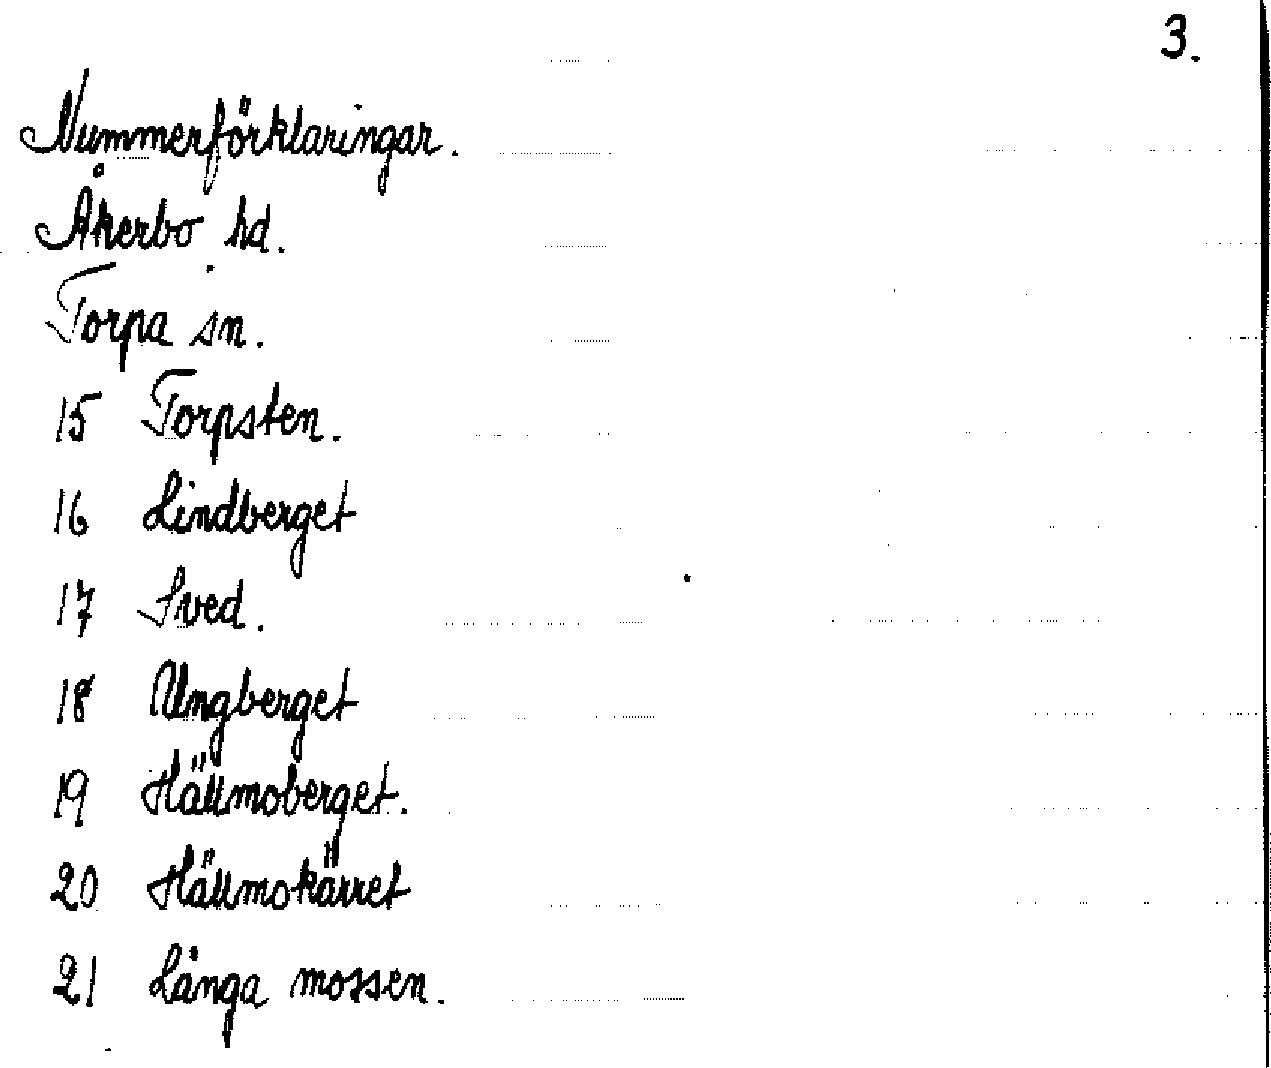 3.
Nummerförklaringar.
Åkerbo hd.
Torpa sn.
15 Torpsten.
16 Lindberget
17 Sved.
18 Ungberget
19 Hällmoberget.
20 Hällmokärret
21 Långa mossen.